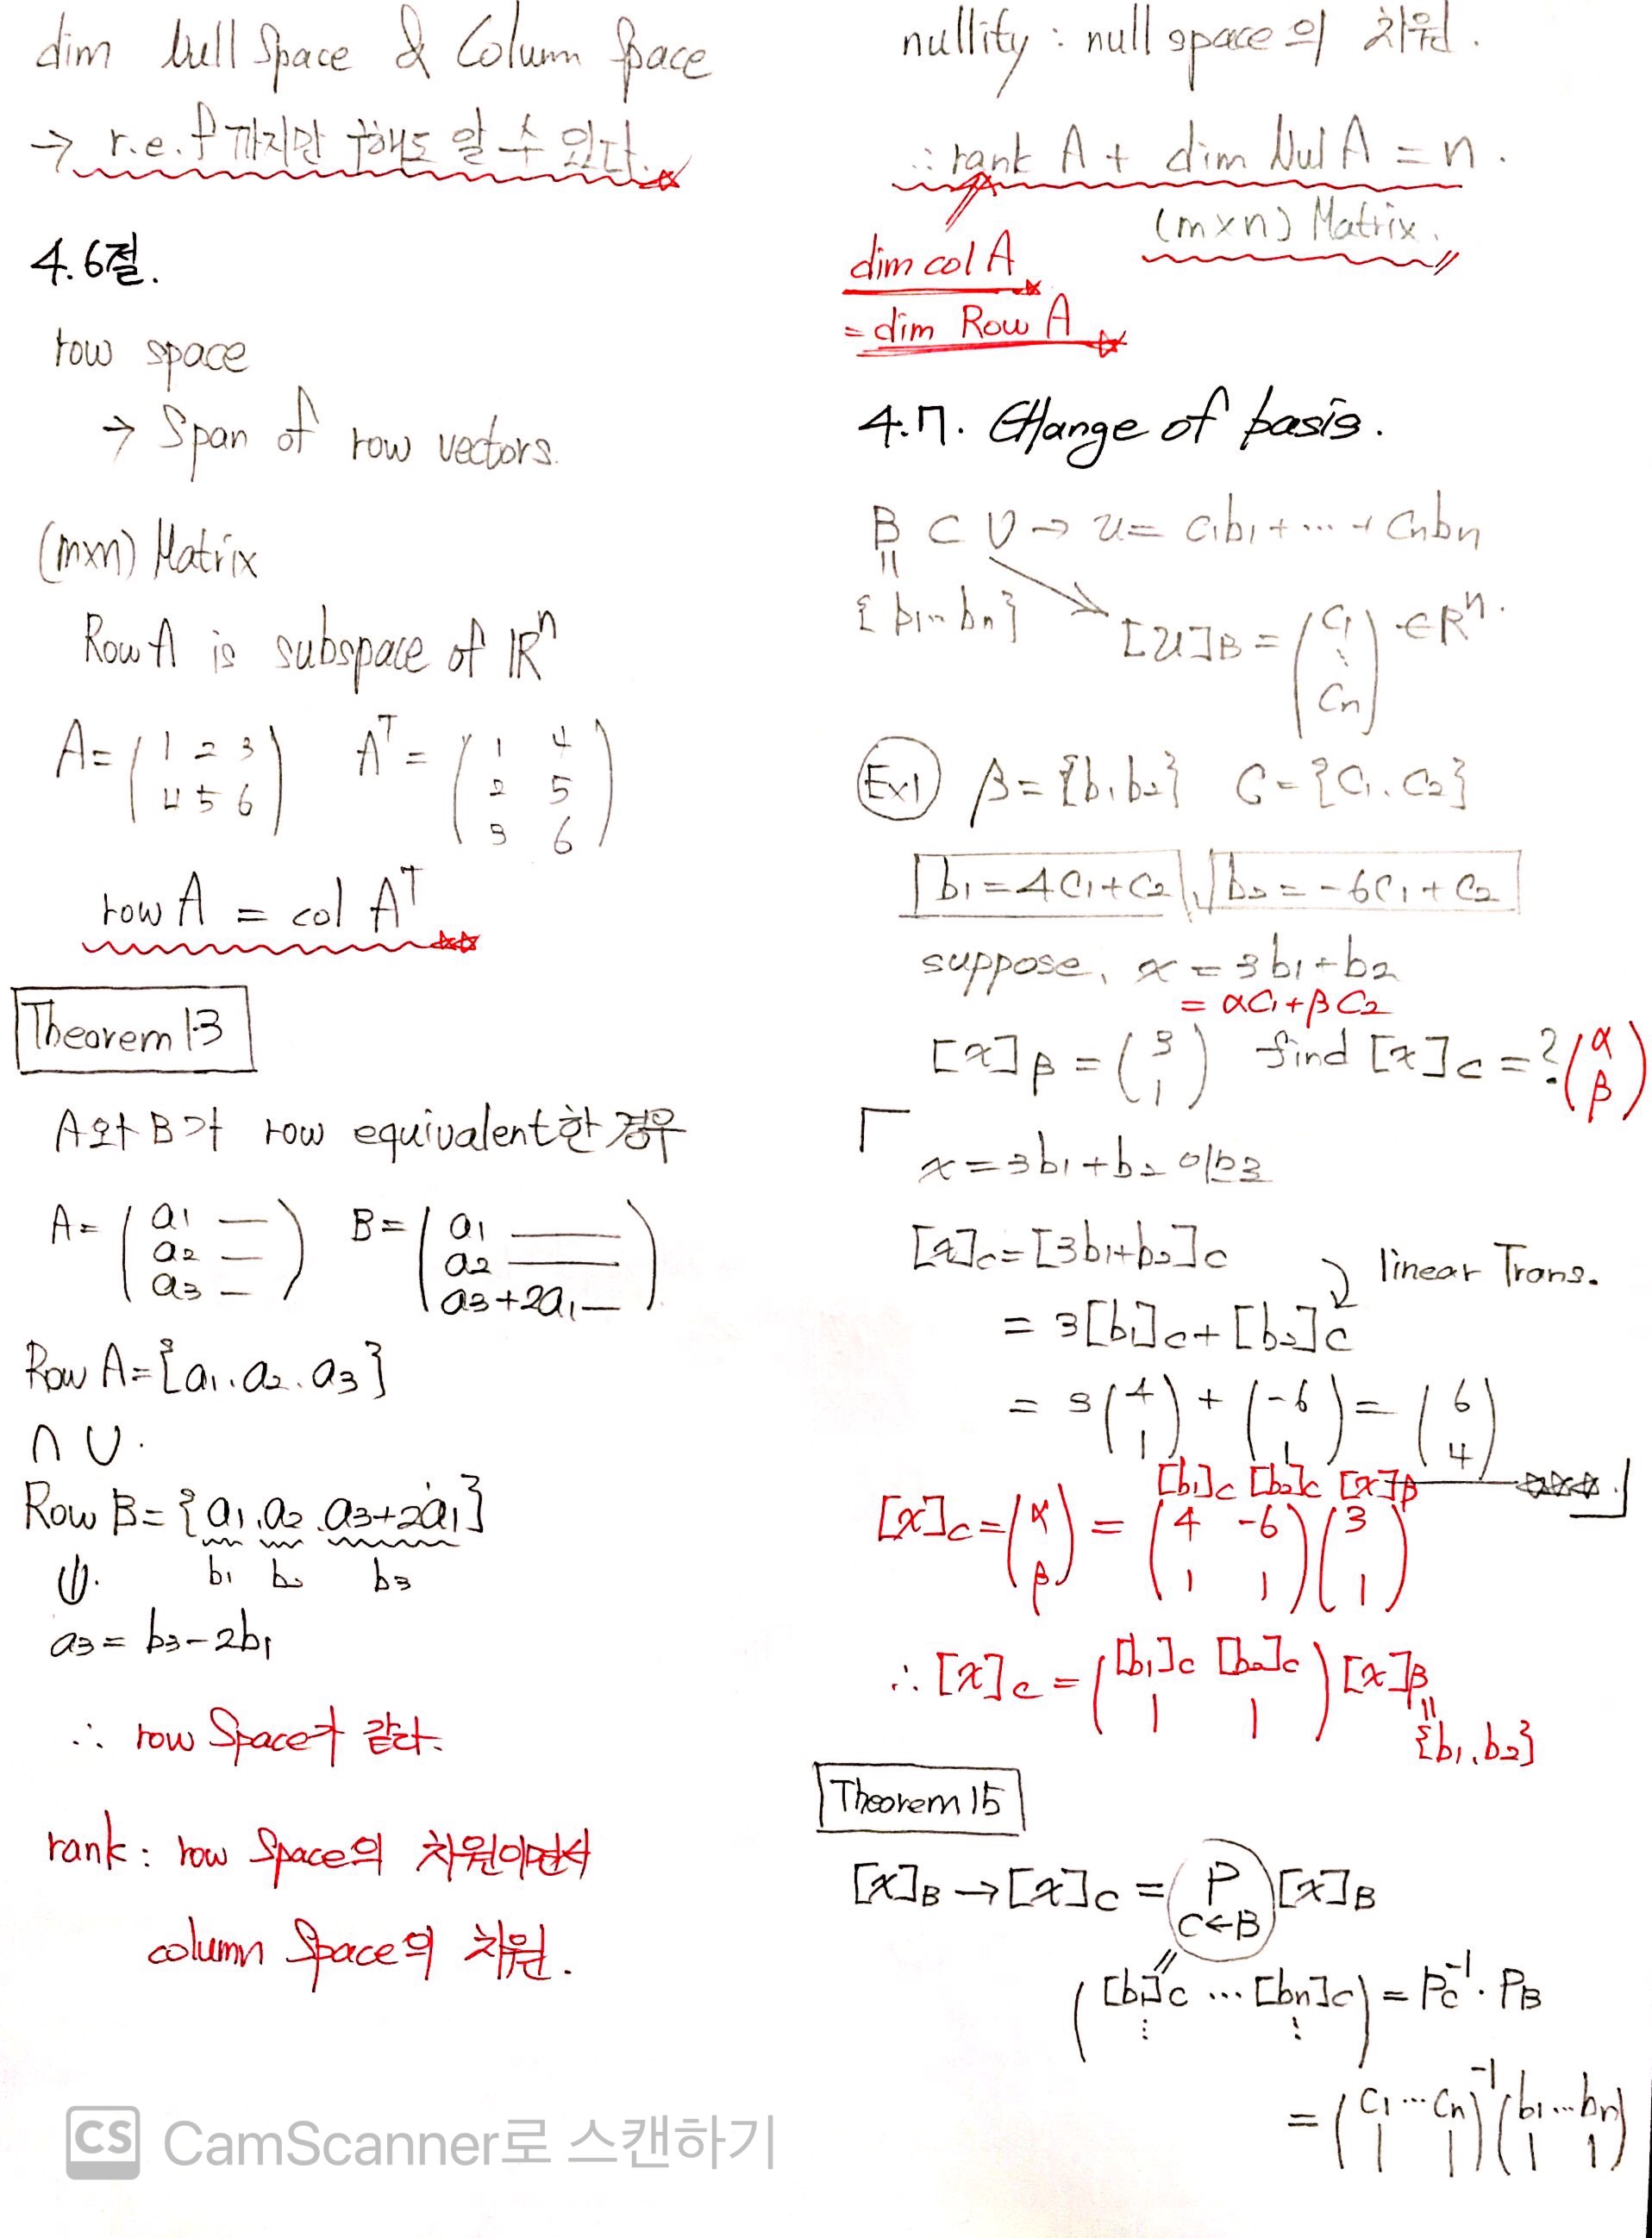 dim Null Space & Column Space
→ r.e.f 까지만 구해도 알 수 있다.
4.6절.
row space
→ Span of row vectors.
(m×n) Matrix
Row A is subspace of ℝⁿ
A = ( 1 2 3 ) Aᵀ = ( 1 4 )
( 4 5 6 ) ( 2 5 )
( 3 6 )
row A = col Aᵀ
Theorem 13
A와 B가 row equivalent한 경우
A = ( a₁ — ) B = ( a₁ — )
( a₂ — ) ( a₂ — )
( a₃ — ) ( a₃+2a₁ — )
Row A = {a₁, a₂, a₃}
∩ ∪.
Row B = {a₁, a₂, a₃+2a₁}
⇓. b₁ b₂ b₃
a₃ = b₃ - 2b₁
∴ row Space가 같다.
rank : row Space의 차원이면서
column Space의 차원.
nullity : null space의 차원.
∴ rank A + dim Nul A = n.
(m×n) Matrix.
dim col A
= dim Row A
4.7. Change of basis.
B ⊂ V → u = c₁b₁ + ⋯ + cₙbₙ
||
{b₁ ⋯ bₙ} [u]B = ( c₁ ) ∈ ℝⁿ.
( ⋮ )
( cₙ )
Ex1 β = {b₁, b₂} C = {c₁, c₂}
b₁ = 4c₁ + c₂, b₂ = -6c₁ + c₂
suppose, x = 3b₁ + b₂
= αc₁ + βc₂
[x]β = ( 3 ) find [x]C = ? ( α )
( 1 ) ( β )
x = 3b₁ + b₂ 이므로
[x]C = [3b₁+b₂]C
linear Trans.
= 3[b₁]C + [b₂]C
= 3( 4 ) + ( -6 ) = ( 6 )
( 1 ) ( 1 ) ( 4 )
[b₁]C [b₂]C [x]β
[x]C = ( α ) = ( 4 -6 ) ( 3 )
( β ) ( 1 1 ) ( 1 )
∴ [x]C = ( [b₁]C [b₂]C ) [x]β
( | | ) ||
{b₁, b₂}
Theorem 15
[x]B → [x]C = P [x]B
C←B
( [b₁]C ⋯ [bₙ]C ) = PC⁻¹ · PB
( ⋮ ⋮ )
= ( c₁ ⋯ cₙ )⁻¹ ( b₁ ⋯ bₙ )
( | | ) ( | | )
CS CamScanner로 스캔하기